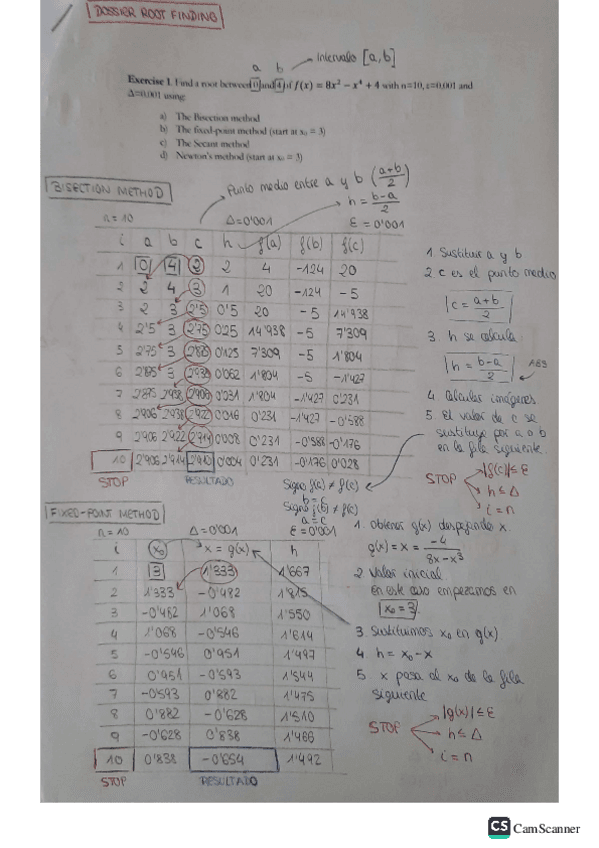 DOSSIER ROOT FINDING
a b → Intervalo [a,b]
Exercise 1. Find a root between 0 and 4 of f(x) = 8x² − x⁴ + 4 with n=10, ε=0,001 and
Δ=0,001 using:
a) The Bisection method
b) The fixed-point method (start at x₀ = 3)
c) The Secant method
d) Newton's method (start at x₀ = 3)
BISECTION METHOD
Punto medio entre a y b (a+b/2)
h = b-a/2
n = 10 Δ=0'001 ε = 0'001
i a b c h f(a) f(b) f(c)
1 0 4 2 2 4 -124 20
2 2 4 3 1 20 -124 -5
3 2 3 2'5 0'5 20 -5 14'938
4 2'5 3 2'75 0'25 14'938 -5 7'309
5 2'75 3 2'875 0'125 7'309 -5 1'804
6 2'875 3 2'938 0'062 1'804 -5 -1'427
7 2'875 2'938 2'906 0'031 1'804 -1'427 0'231
8 2'906 2'938 2'922 0'016 0'231 -1'427 -0'588
9 2'906 2'922 2'914 0'008 0'231 -0'588 -0'176
10 2'906 2'914 2'910 0'004 0'231 -0'176 0'028
STOP RESULTADO
Signo f(a) ≠ f(c)
b = c
Signo f(b) ≠ f(c)
a = c
1 Sustituir a y b
2 c es el punto medio
c = a+b/2
3. h se calcula
h = b-a/2 ABS
4 Calcular imágenes
5 El valor de c se
sustituye por a o b
en la fila siguiente.
STOP |f(c)| ≤ ε
h ≤ Δ
i = n
FIXED-POINT METHOD
n = 10 Δ=0'001 ε=0'001
i x₀ x = g(x) h
1 3 1'333 1'667
2 1'333 -0'482 1'815
3 -0'482 1'068 1'550
4 1'068 -0'546 1'614
5 -0'546 0'951 1'497
6 0'951 -0'593 1'544
7 -0'593 0'882 1'475
8 0'882 -0'628 1'510
9 -0'628 0'838 1'466
10 0'838 -0'654 1'492
STOP RESULTADO
1. Obtener g(x) despejando x.
g(x) = x = -4/8x-x³
2 Valor inicial
en este caso empezamos en
x₀ = 3
3. Sustituimos x₀ en g(x)
4 h = x₀ - x
5 x pasa al x₀ de la fila
siguiente
STOP |g(x)| ≤ ε
h ≤ Δ
i = n
CS CamScanner